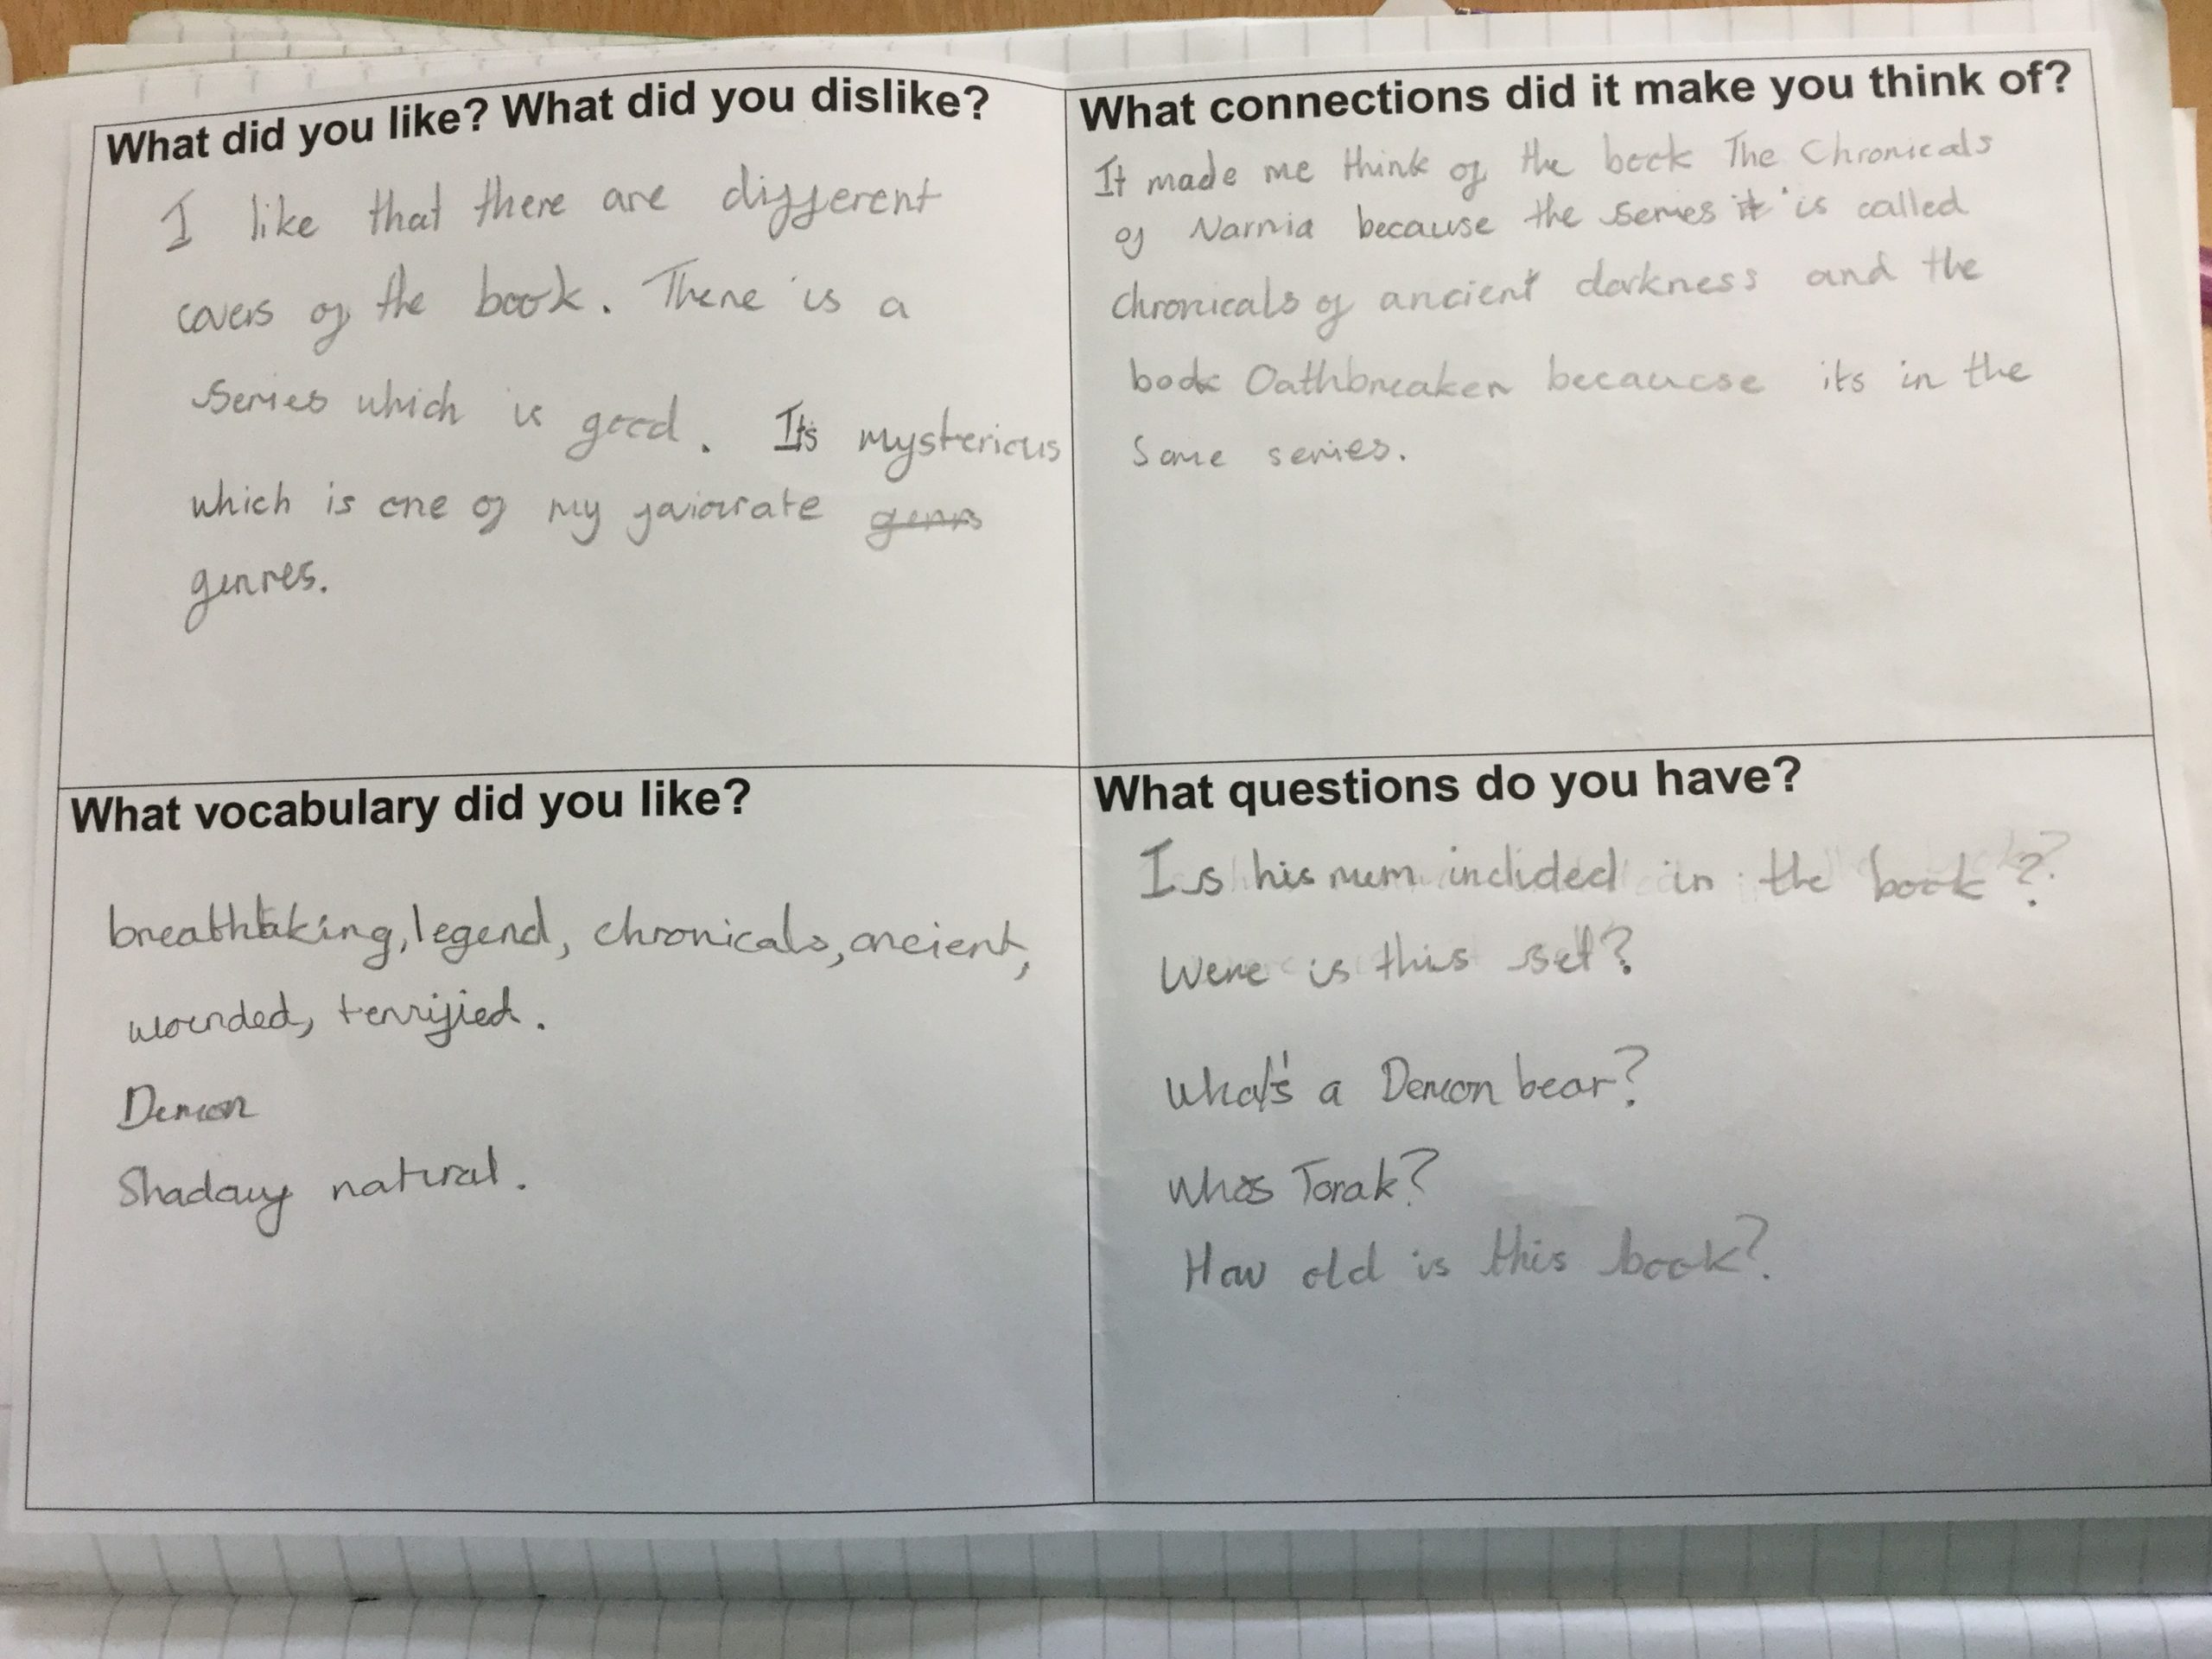 What did you like? What did you dislike?
I like that there are different
covers of the book. There is a
series which is good. Its mysterious
which is one of my faviourate genrs
genres.
What connections did it make you think of?
It made me think of the book The Chronicals
of Narnia because the series it is called
chronicals of ancient darkness and the
book Oathbreaker becaucse its in the
Same series.
What vocabulary did you like?
breathtaking, legend, chronicals, ancient,
wounded, terrified.
Demon
Shadowy natural.
What questions do you have?
Is his mum included in the book?
Were is this set?
What's a Demon bear?
Whos Torak?
How old is this book?